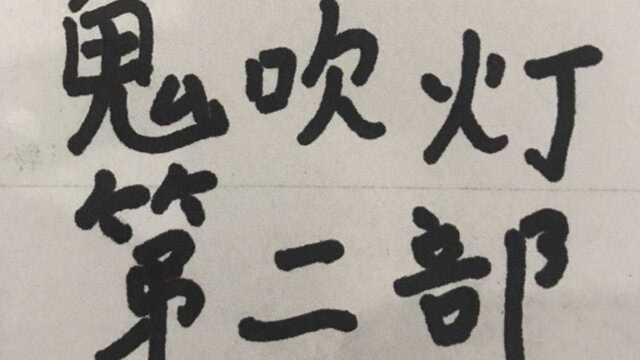 鬼吹灯
第二部